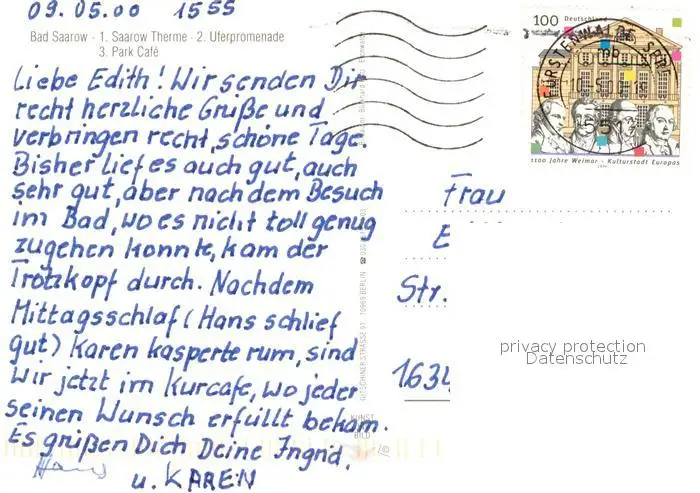 09.05.00 1555
Bad Saarow · 1. Saarow Therme · 2. Uferpromenade
3. Park Café
Liebe Edith! Wir senden Dir
recht herzliche Grüße und
verbringen recht schöne Tage.
Bisher lief es auch gut, auch
sehr gut, aber nach dem Besuch
im Bad, wo es nicht toll genug
zugehen konnte, kam der
Trotzkopf durch. Nachdem
Mittagsschlaf (Hans schlief
gut) Karen kasperte rum, sind
wir jetzt im Kurcafe, wo jeder
seinen Wunsch erfüllt bekam.
Es grüßen Dich Deine Ingrid,
Hans
u. KAREN
KUNST
BILD
10965 BERLIN
100 Deutschland
FÜRSTENWALDE, SPREE
1100 Jahre Weimar - Kulturstadt Europas
Frau
E
Str.
1634
privacy protection
Datenschutz